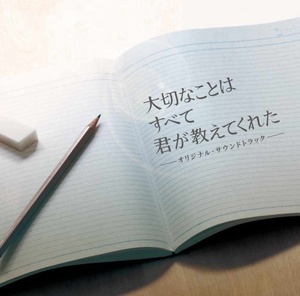 大切なことは
すべて
君が教えてくれた
―オリジナル・サウンドトラック―